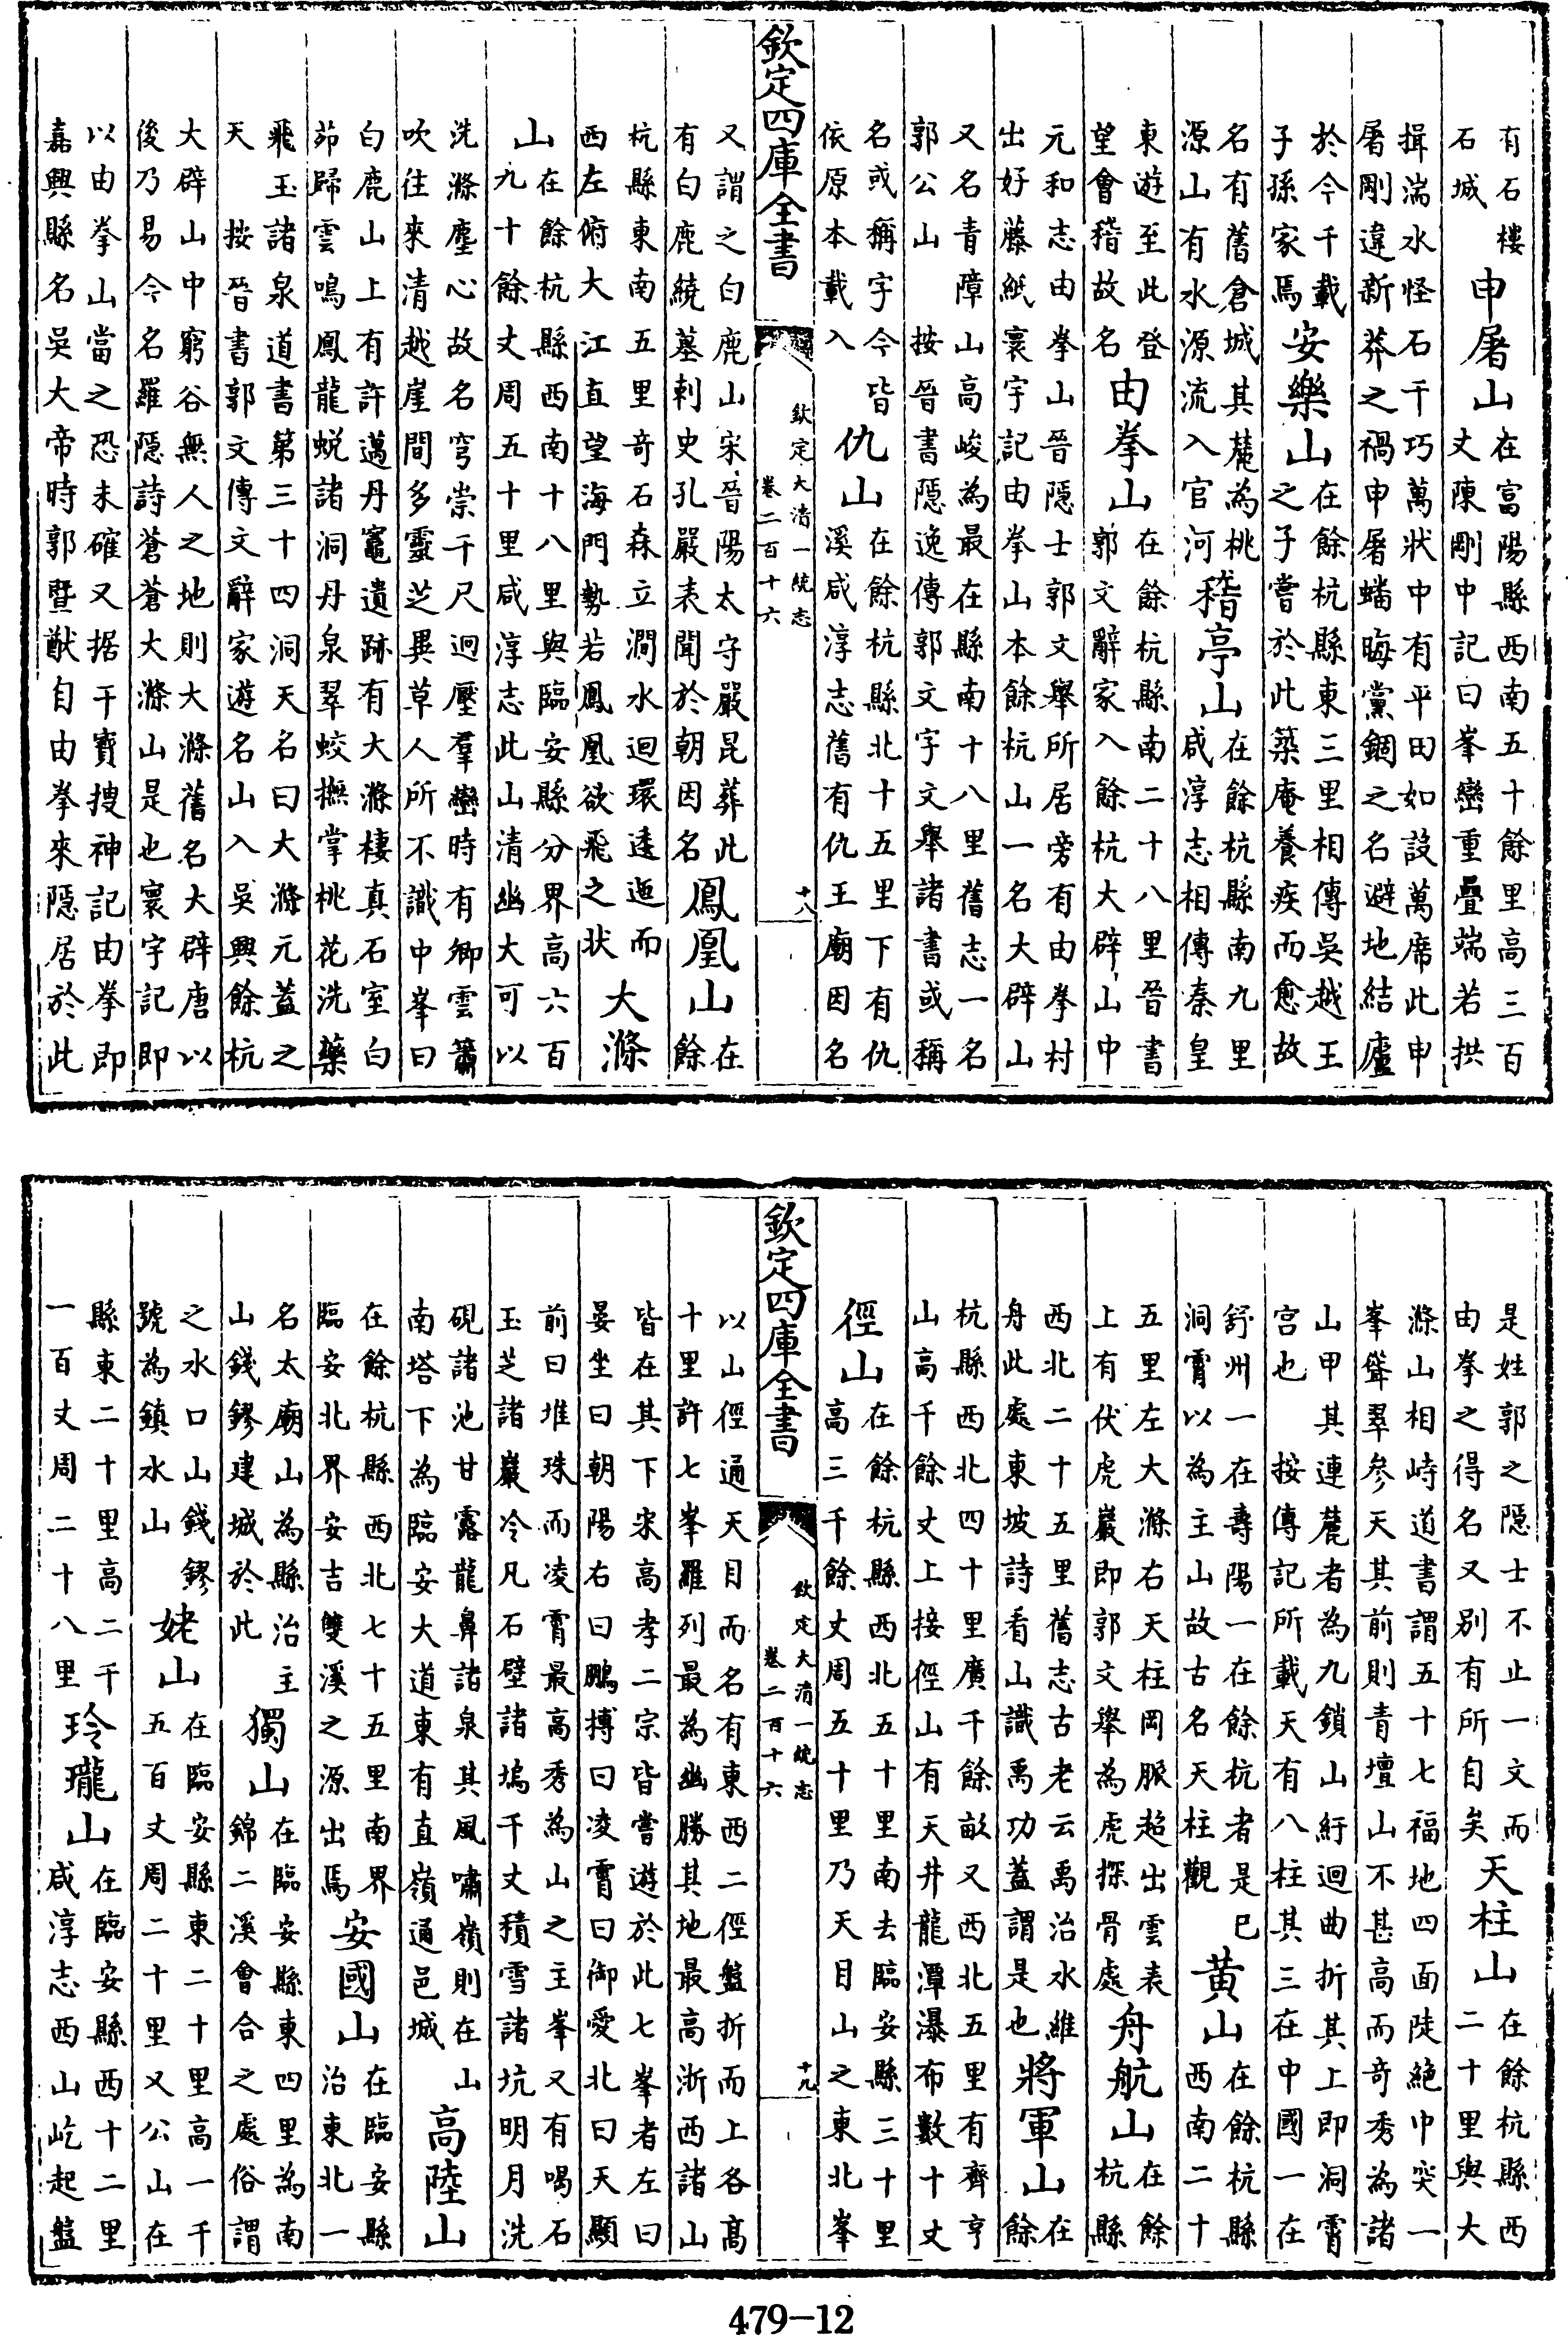 有石樓石城申屠山在富陽縣西南五十餘里高三百丈陳剛中記曰峯巒重疊端若拱
揖湍水怪石千巧萬狀中有平田如設萬席此申屠剛違新莽之禍申屠蟠晦黨錮之名避地結廬
於今千載子孫家焉安樂山在餘杭縣東三里相傳吳越王之子嘗於此築庵養疾而愈故
名有舊倉城其麓為桃源山有水源流入官河稽亭山在餘杭縣南九里咸淳志相傳秦皇
東遊至此登望會稽故名由拳山在餘杭縣南二十八里晉書郭文辭家入餘杭大辟山中
元和志由拳山晉隱士郭文舉所居旁有由拳村出好藤紙寰宇記由拳山本餘杭山一名大辟山
又名青障山高峻為最在縣南十八里舊志一名郭公山 按晉書隱逸傳郭文字文舉諸書或稱
名或稱字今皆依原本載入仇山在餘杭縣北十五里下有仇溪咸淳志舊有仇王廟因名
欽定四庫全書 欽定大清一統志 卷二百十六 十八
又謂之白鹿山宋晉陽太守嚴昆葬此有白鹿繞墓刺史孔嚴表聞於朝因名鳳凰山在餘
杭縣東南五里奇石森立澗水迴環逶迤而西左俯大江直望海門勢若鳳凰欲飛之狀大滌
山在餘杭縣西南十八里與臨安縣分界高六百九十餘丈周五十里咸淳志此山清幽大可以
洗滌塵心故名穹崇千尺迥壓羣巒時有卿雲簫吹往來清越崖間多靈芝異草人所不識中峯曰
白鹿山上有許邁丹竈遺跡有大滌棲真石室白茆歸雲鳴鳳龍蛻諸洞丹泉翠蛟撫掌桃花洗藥
飛玉諸泉道書第三十四洞天名曰大滌元蓋之天 按晉書郭文傳文辭家遊名山入吳興餘杭
大辟山中窮谷無人之地則大滌舊名大辟唐以後乃易今名羅隱詩蒼蒼大滌山是也寰宇記即
以由拳山當之恐未確又据干寶搜神記由拳即嘉興縣名吳大帝時郭暨猷自由拳來隱居於此
是姓郭之隱士不止一文而由拳之得名又別有所自矣天柱山在餘杭縣西二十里與大
滌山相峙道書謂五十七福地四面陡絶巾突一峯聳翠參天其前則青壇山不甚高而奇秀為諸
山甲其連麓者為九鎖山紆迴曲折其上即洞霄宮也 按傳記所載天有八柱其三在中國一在
舒州一在壽陽一在餘杭者是已洞霄以為主山故古名天柱觀黃山在餘杭縣西南二十
五里左大滌右天柱岡脈超出雲表上有伏虎巖即郭文舉為虎探骨處舟航山在餘杭縣
西北二十五里舊志古老云禹治水維舟此處東坡詩看山識禹功蓋謂是也將軍山在餘
杭縣西北四十里廣千餘畝又西北五里有齊亨山高千餘丈上接徑山有天井龍潭瀑布數十丈
徑山在餘杭縣西北五十里南去臨安縣三十里高三千餘丈周五十里乃天目山之東北峯
欽定四庫全書 欽定大清一統志 卷二百十六 十九
以山徑通天目而名有東西二徑盤折而上各高十里許七峯羅列最為幽勝其地最高浙西諸山
皆在其下宋高孝二宗皆嘗遊於此七峯者左曰晏坐曰朝陽右曰鵬搏曰凌霄曰御愛北曰天顯
前曰堆珠而凌霄最高秀為山之主峯又有喝石玉芝諸巖冷凡石壁諸塢千丈積雪諸坑明月洗
硯諸池甘露龍鼻諸泉其風嘯嶺則在山南塔下為臨安大道東有直嶺通邑城高陸山
在餘杭縣西北七十五里南界臨安北界安吉雙溪之源出焉安國山在臨安縣治東北一
名太廟山為縣治主山錢鏐建城於此獨山在臨安縣東四里為南錦二溪會合之處俗謂
之水口山錢鏐號為鎮水山姥山在臨安縣東二十里高一千五百丈周二十里又公山在
縣東二十里高二千一百丈周二十八里玲瓏山在臨安縣西十二里咸淳志西山屹起盤
479-12